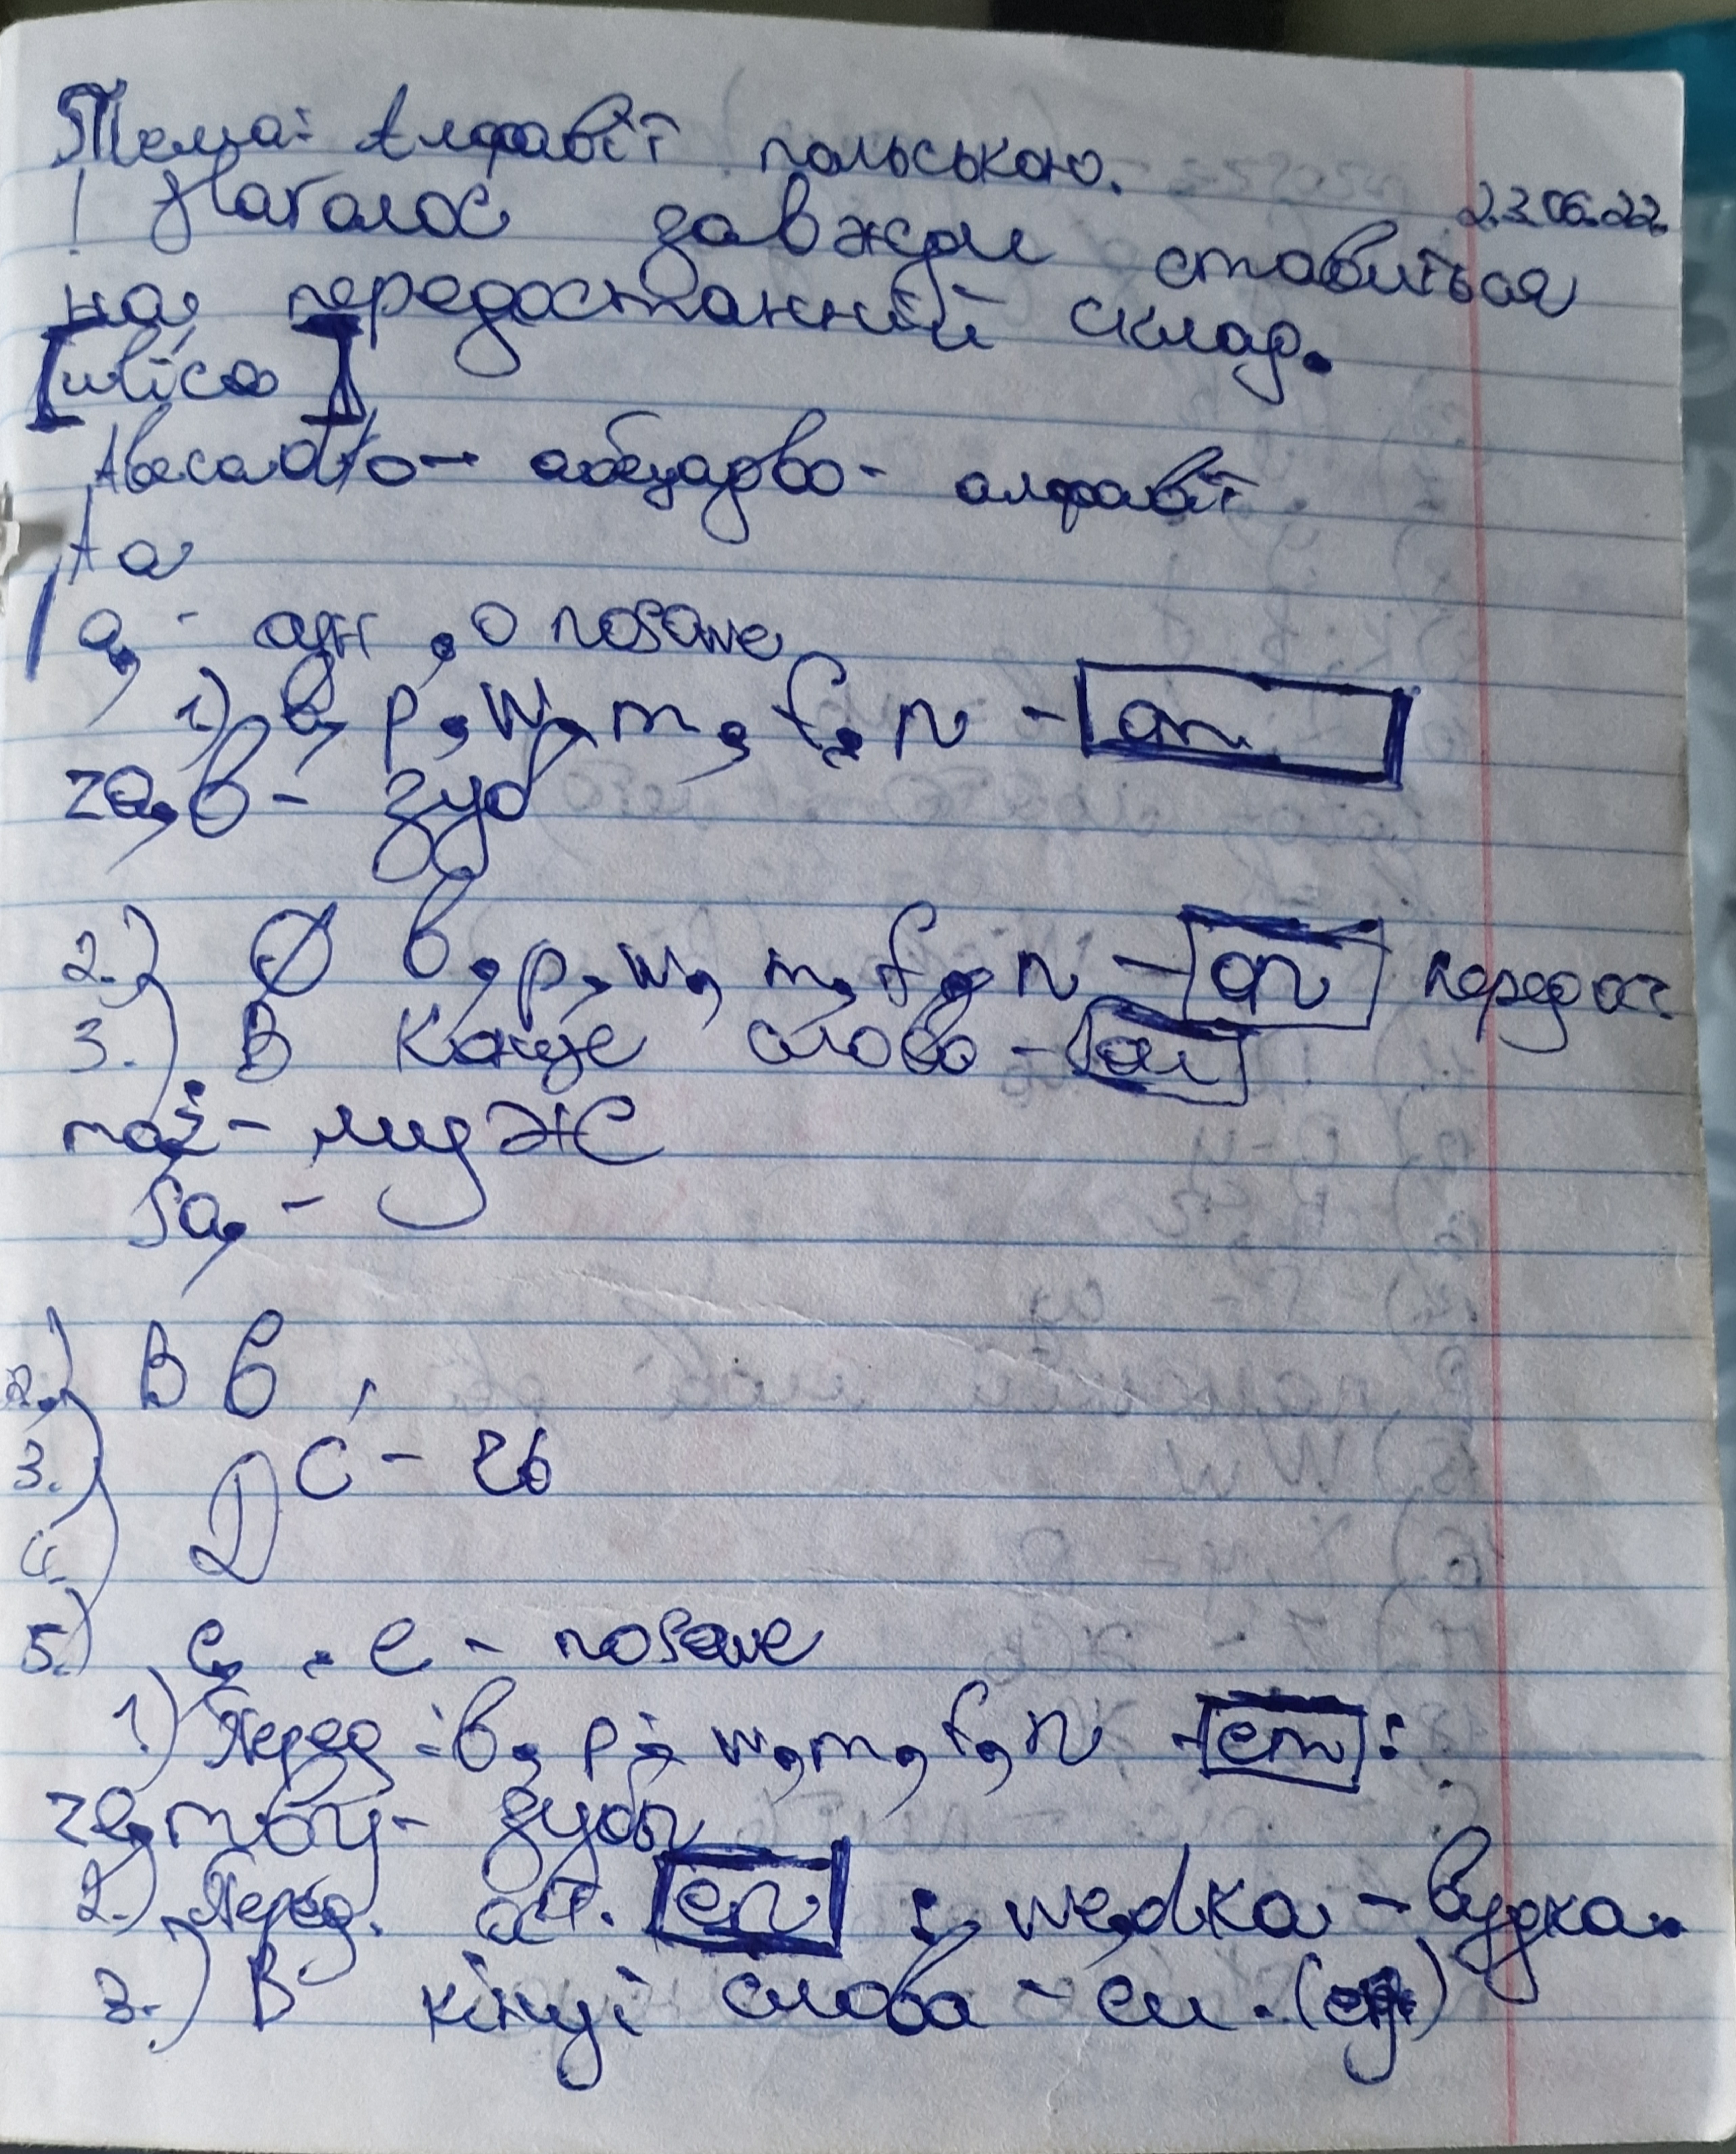 Тема: Алфавіт польською.
23.06.22.
! Наголос завжди ставиться
на передостанній склад.
[ulica]
Abecadło - абецадво - алфавіт
A a
ą - , o nosowe
1) b, p, w, m, f, n - om
ząb - зуб
2.) Ø b, p, w, m, f, n - on
3.) В конце слова -
mąż - мудж
są -
2.) B b
3.) Ć - чь
4.) D
5.) ę . e - nosowe
1.) Перед : b, p, w, m, f, n - em :
zęmby - зубы
2.) Перед. ост. en : wędka - вудка.
3.) В кінці слова - ем.